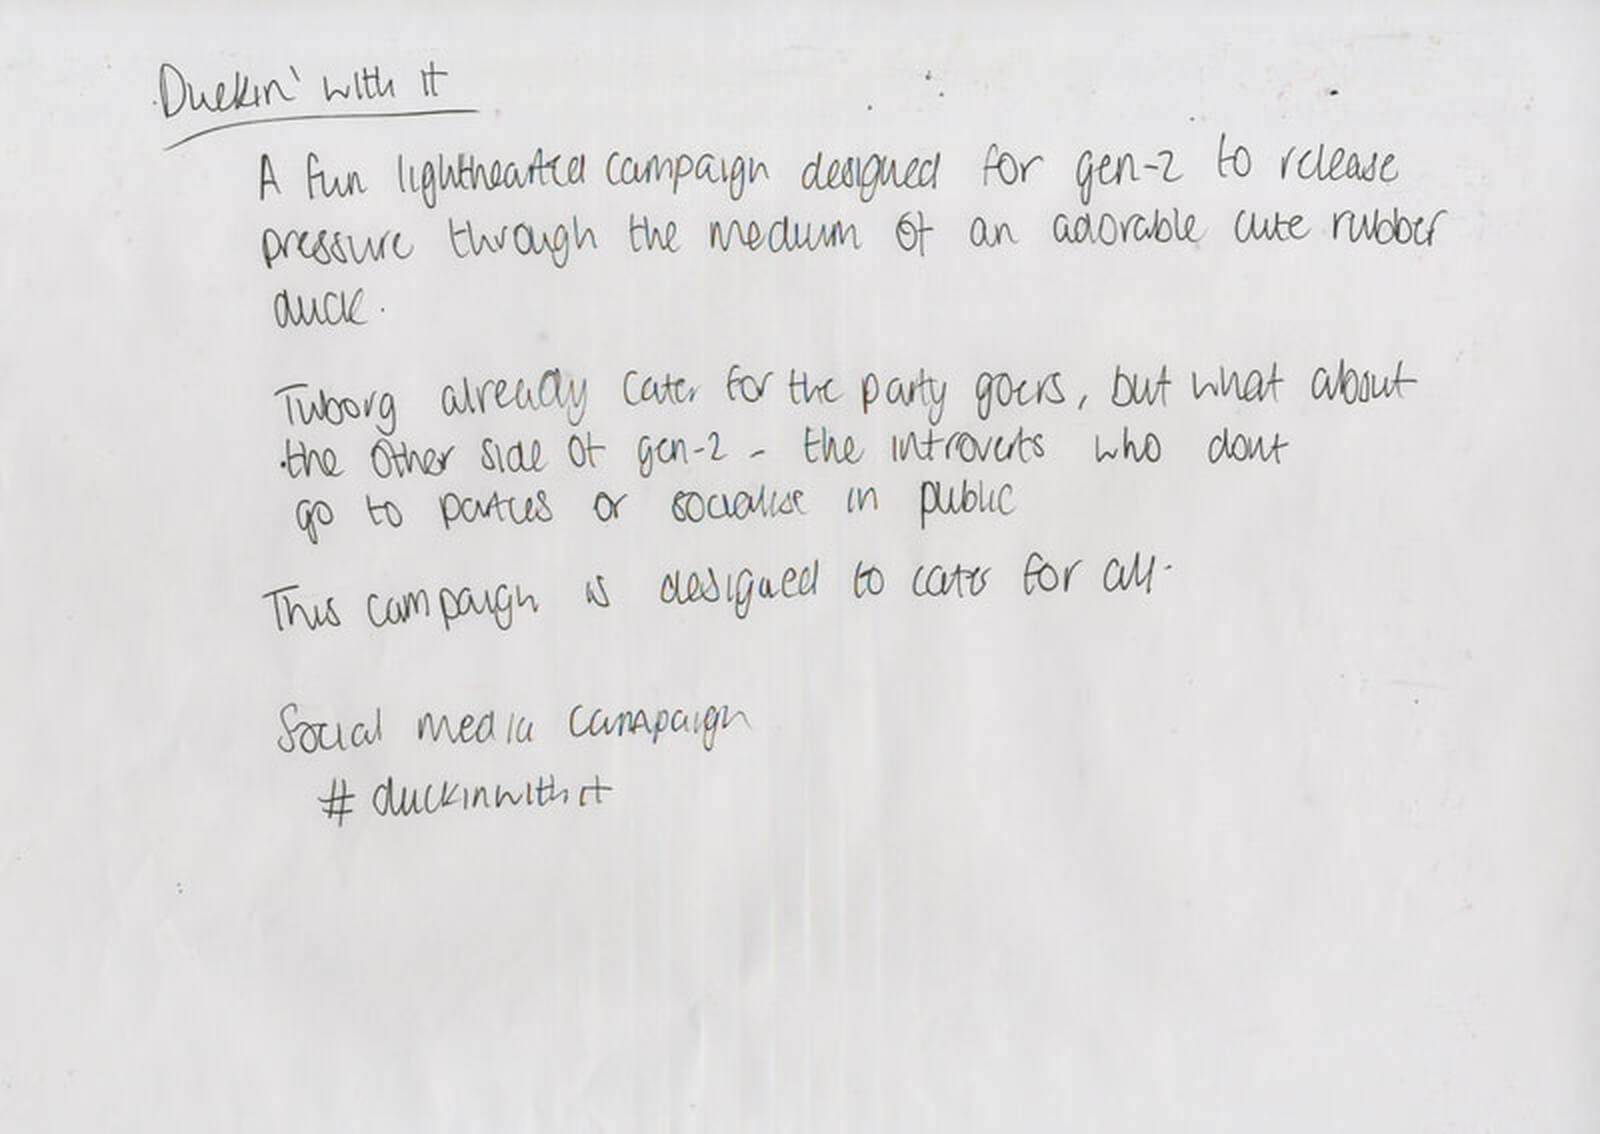 Duckin' with it
A fun lighthearted campaign designed for gen-z to release
pressure through the medium of an adorable cute rubber
duck.
Tuborg already cater for the party goers, but what about
the other side of gen-z - the introverts who dont
go to parties or socialise in public
This campaign is designed to cater for all.
Social media campaign
# duckinwithit